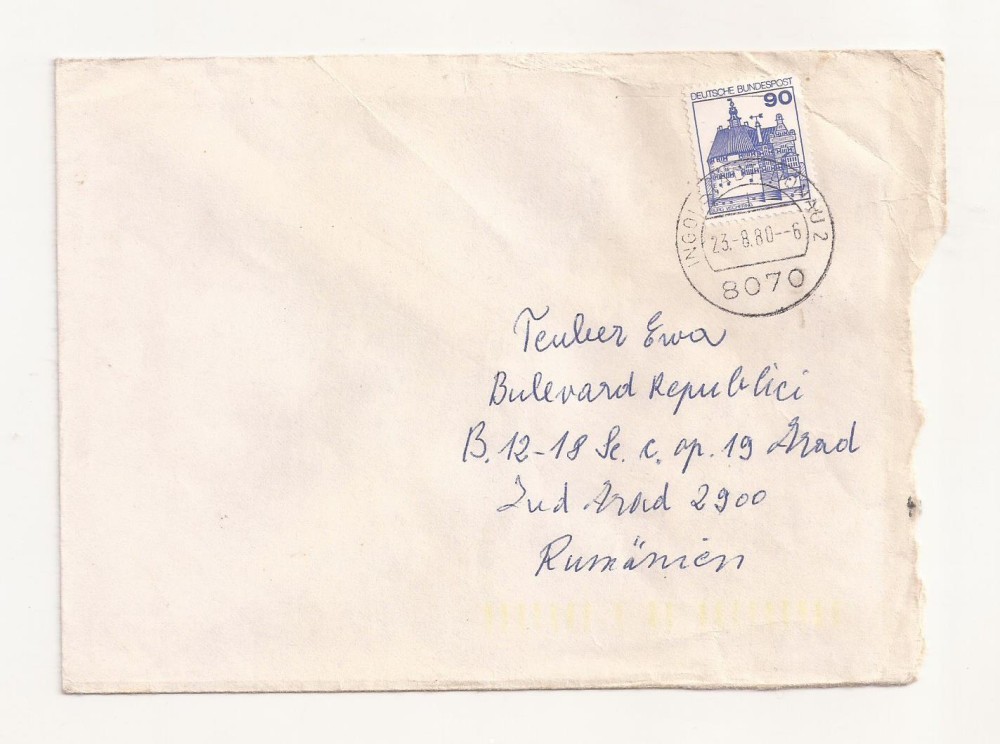 DEUTSCHE BUNDESPOST
90
23.-8.80--6
8070
Teuber Ewa
Bulevard Republici
B. 12-18 Sc. c. ap. 19 Arad
Jud Arad 2900
Rumänien